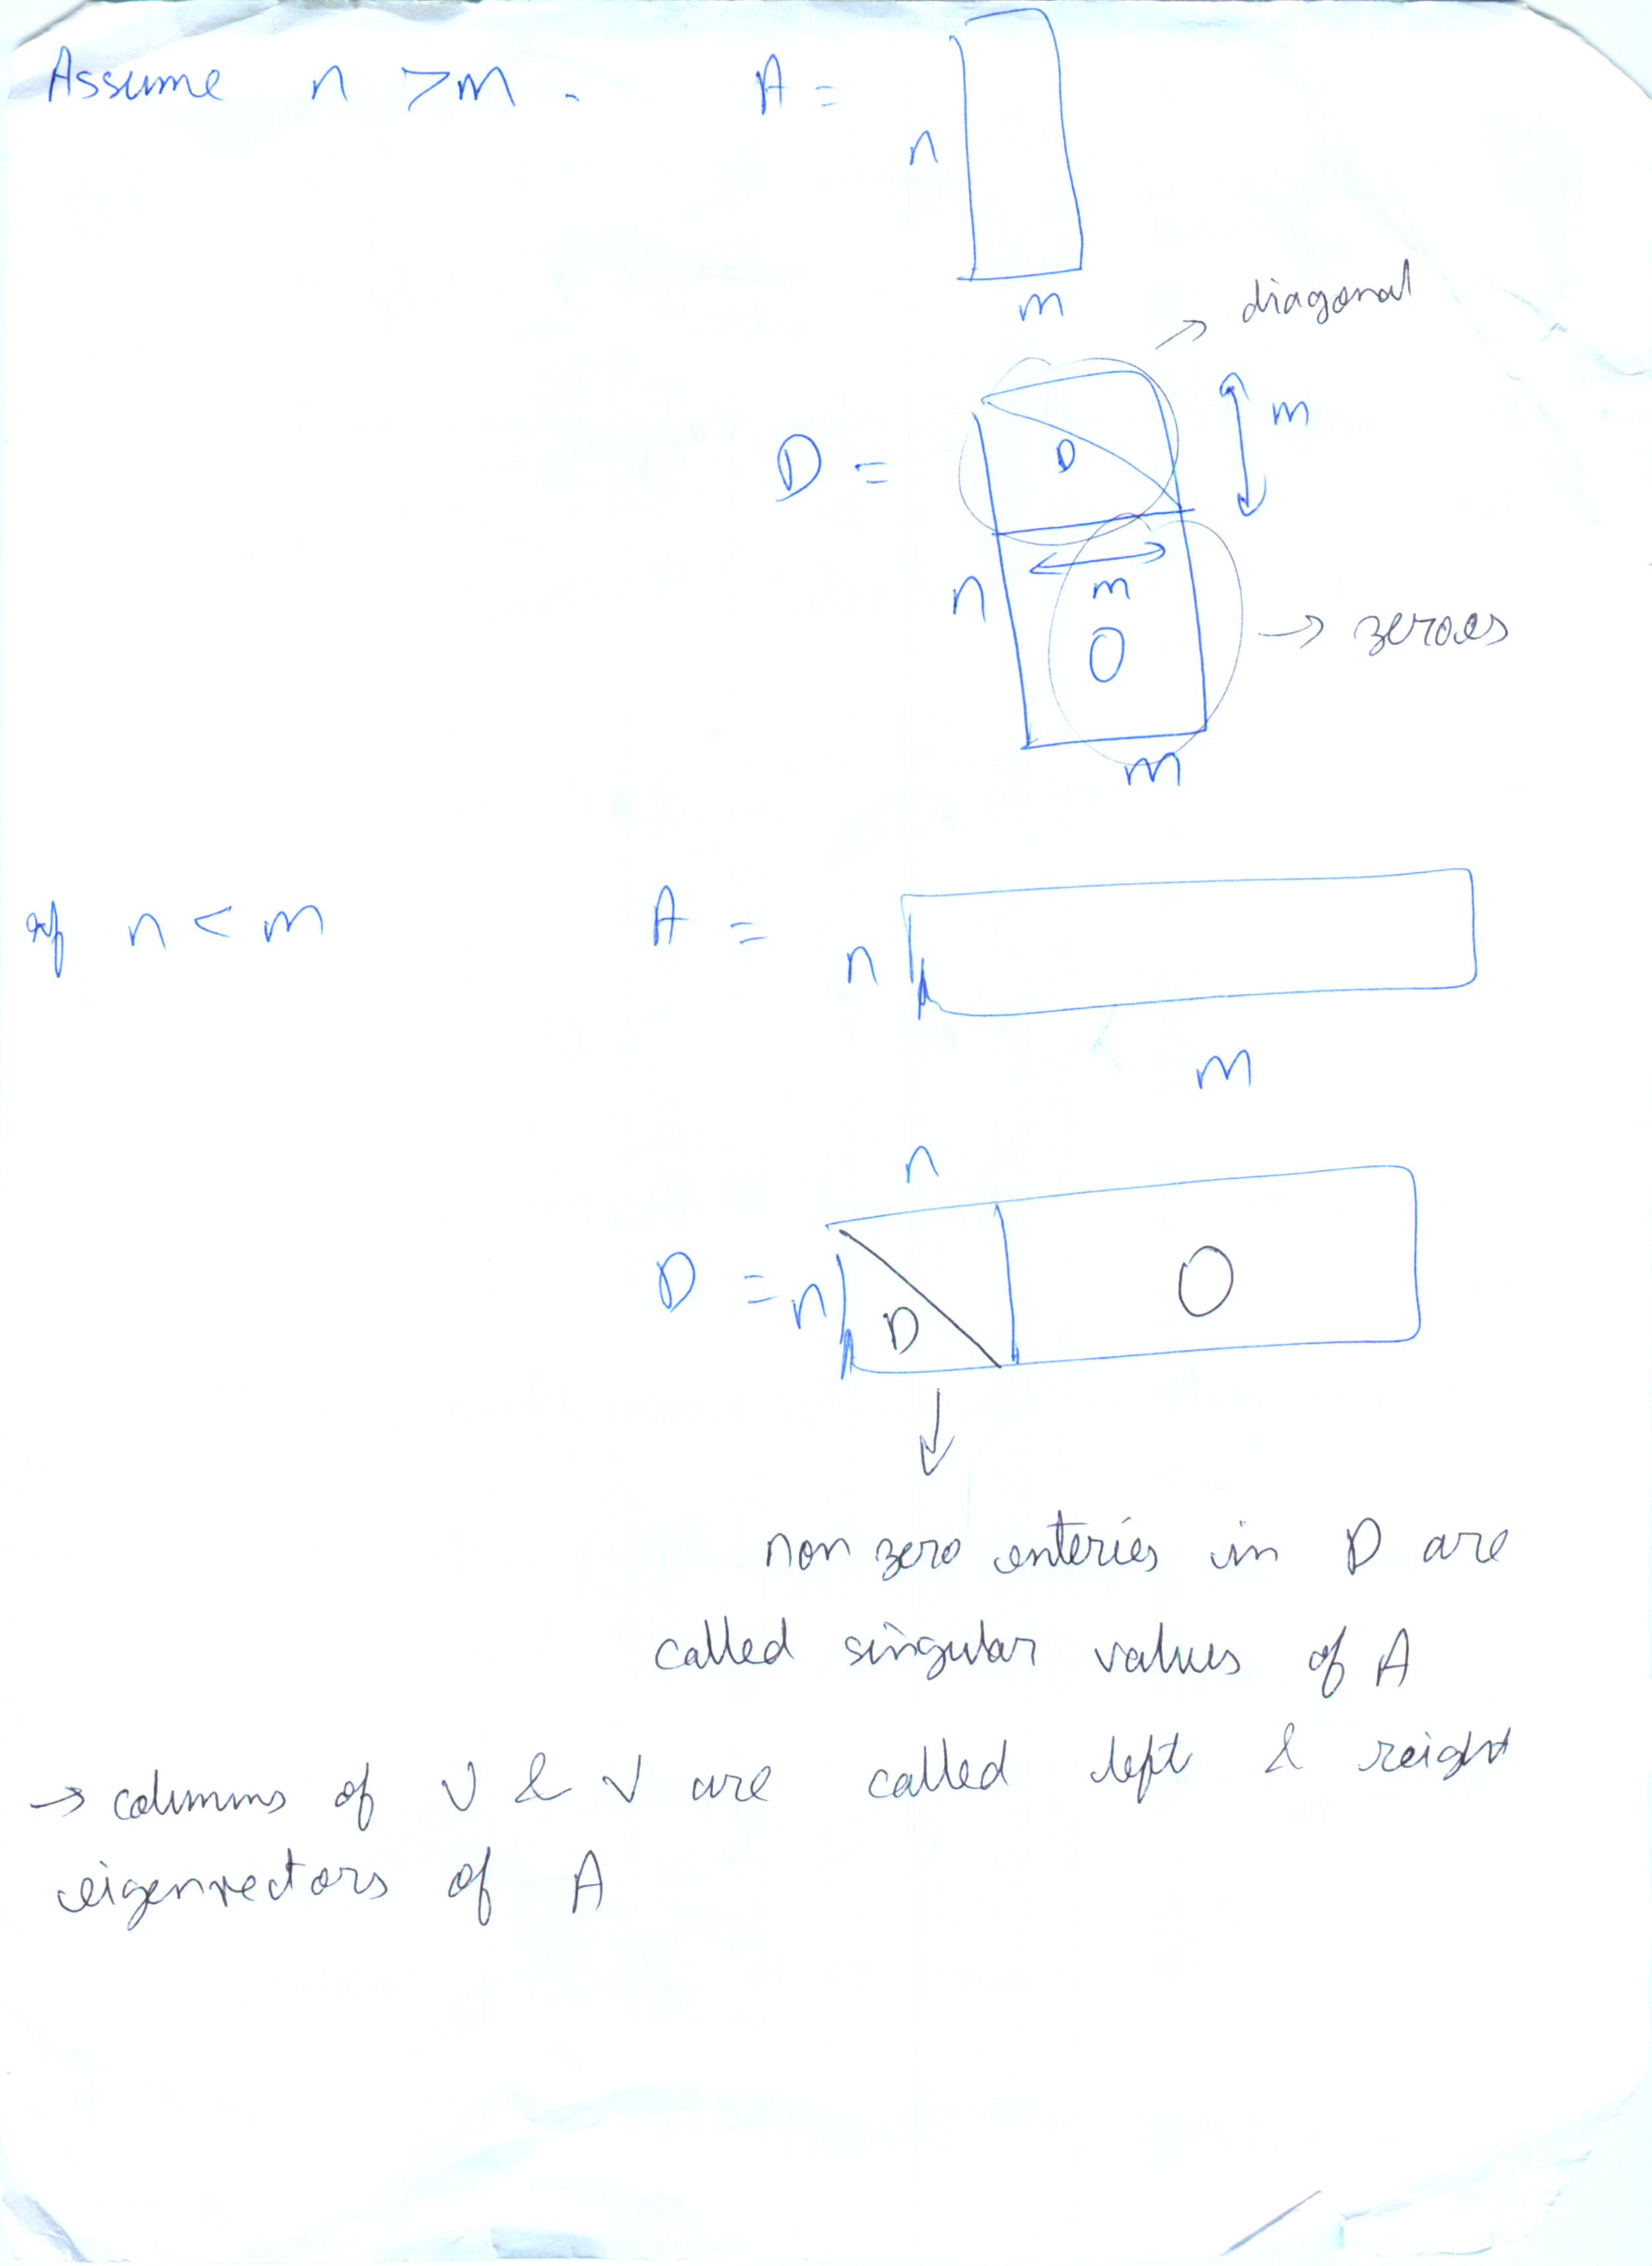 Assume n > m . A =
n
m
→ diagonal
D = D m
n m
O → zeroes
m
if n < m A =
n
m
n
D = n D O
↓
non zero enteries in D are
called singular values of A
→ columns of U & V are called left & reight
eigenvectors of A